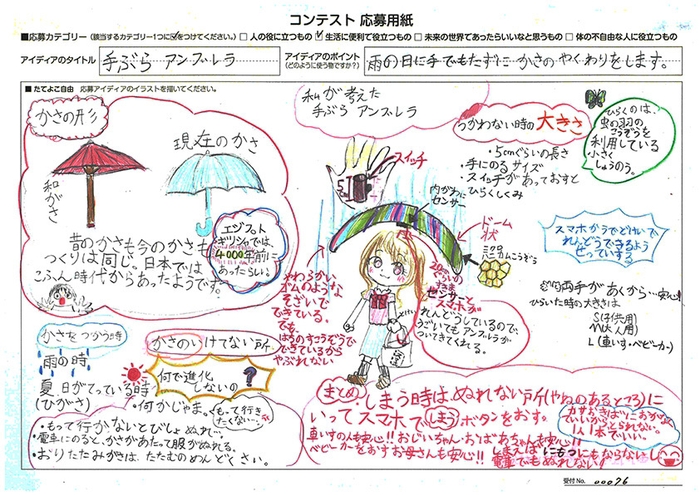 コンテスト 応募用紙
■応募カテゴリー(該当するカテゴリー1つに✓をつけてください。) □ 人の役に立つもの ☑ 生活に便利で役立つもの □ 未来の世界であったらいいなと思うもの □ 体の不自由な人に役立つもの
アイディアのタイトル
手ぶら アンブレラ
アイディアのポイント
(どのように使う物ですか?)
雨の日に手でもたずに かさの やくわりをします。
■たてよこ自由 応募アイディアのイラストを描いてください。
かさの形
現在のかさ
和がさ
昔のかさも今のかさも
つくりは同じ。日本では
こふん時代からあったようです。
エジプト
ギリシャでは、
4000年前に
あったらしい。
私が考えた
手ぶら アンブレラ
スイッチ
5cm
内がわに
センサー
ドーム
状
つかわない時の大きさ
・5cmぐらいの長さ
・手にのるサイズ
・スイッチがあっておすと
ひらくしくみ
ひらくのは、
虫の羽の
こうぞうを
利用している
小さく
しゅうのう。
スマホからでとけいで
れんどうできるよう
ハニカムこうぞう
やわらかい
ゴムのような
そざいで
できている。
でも、
はちのすこうぞうで
できているから
やぶれない
20cm
ぐらい
センサーと
スマホが
れんどうしているので、
うごいてもアンブレラが
ついてきてくれる。
両手があくから…安心!!
ひらいた時の大きさは
S(子供用)
M(大人用)
L(車いす・ベビーカー)
かさをつかう時
雨の時
夏 日がてっている時
(ひがさ)
かさのいけてない所
何で進化
しないの?
・何かじゃま。
もって行き
たくない…
・もって行かないとびしょぬれに…
・電車にのると、かさがあたって服がぬれる。
・おりたたみがさは、たたむのめんどくさい。
まとめ
しまう時はぬれない所(やねのあるところ)に
いってスマホでしまうボタンをおす。
車いすの人も安心!! おじいちゃん・おばあちゃんも安心!!
ベビーカーをおすお母さんも安心!!
しまえばにもつにもならないし
電車でもぬれない!
1人1本でいい。
受付No. 00076